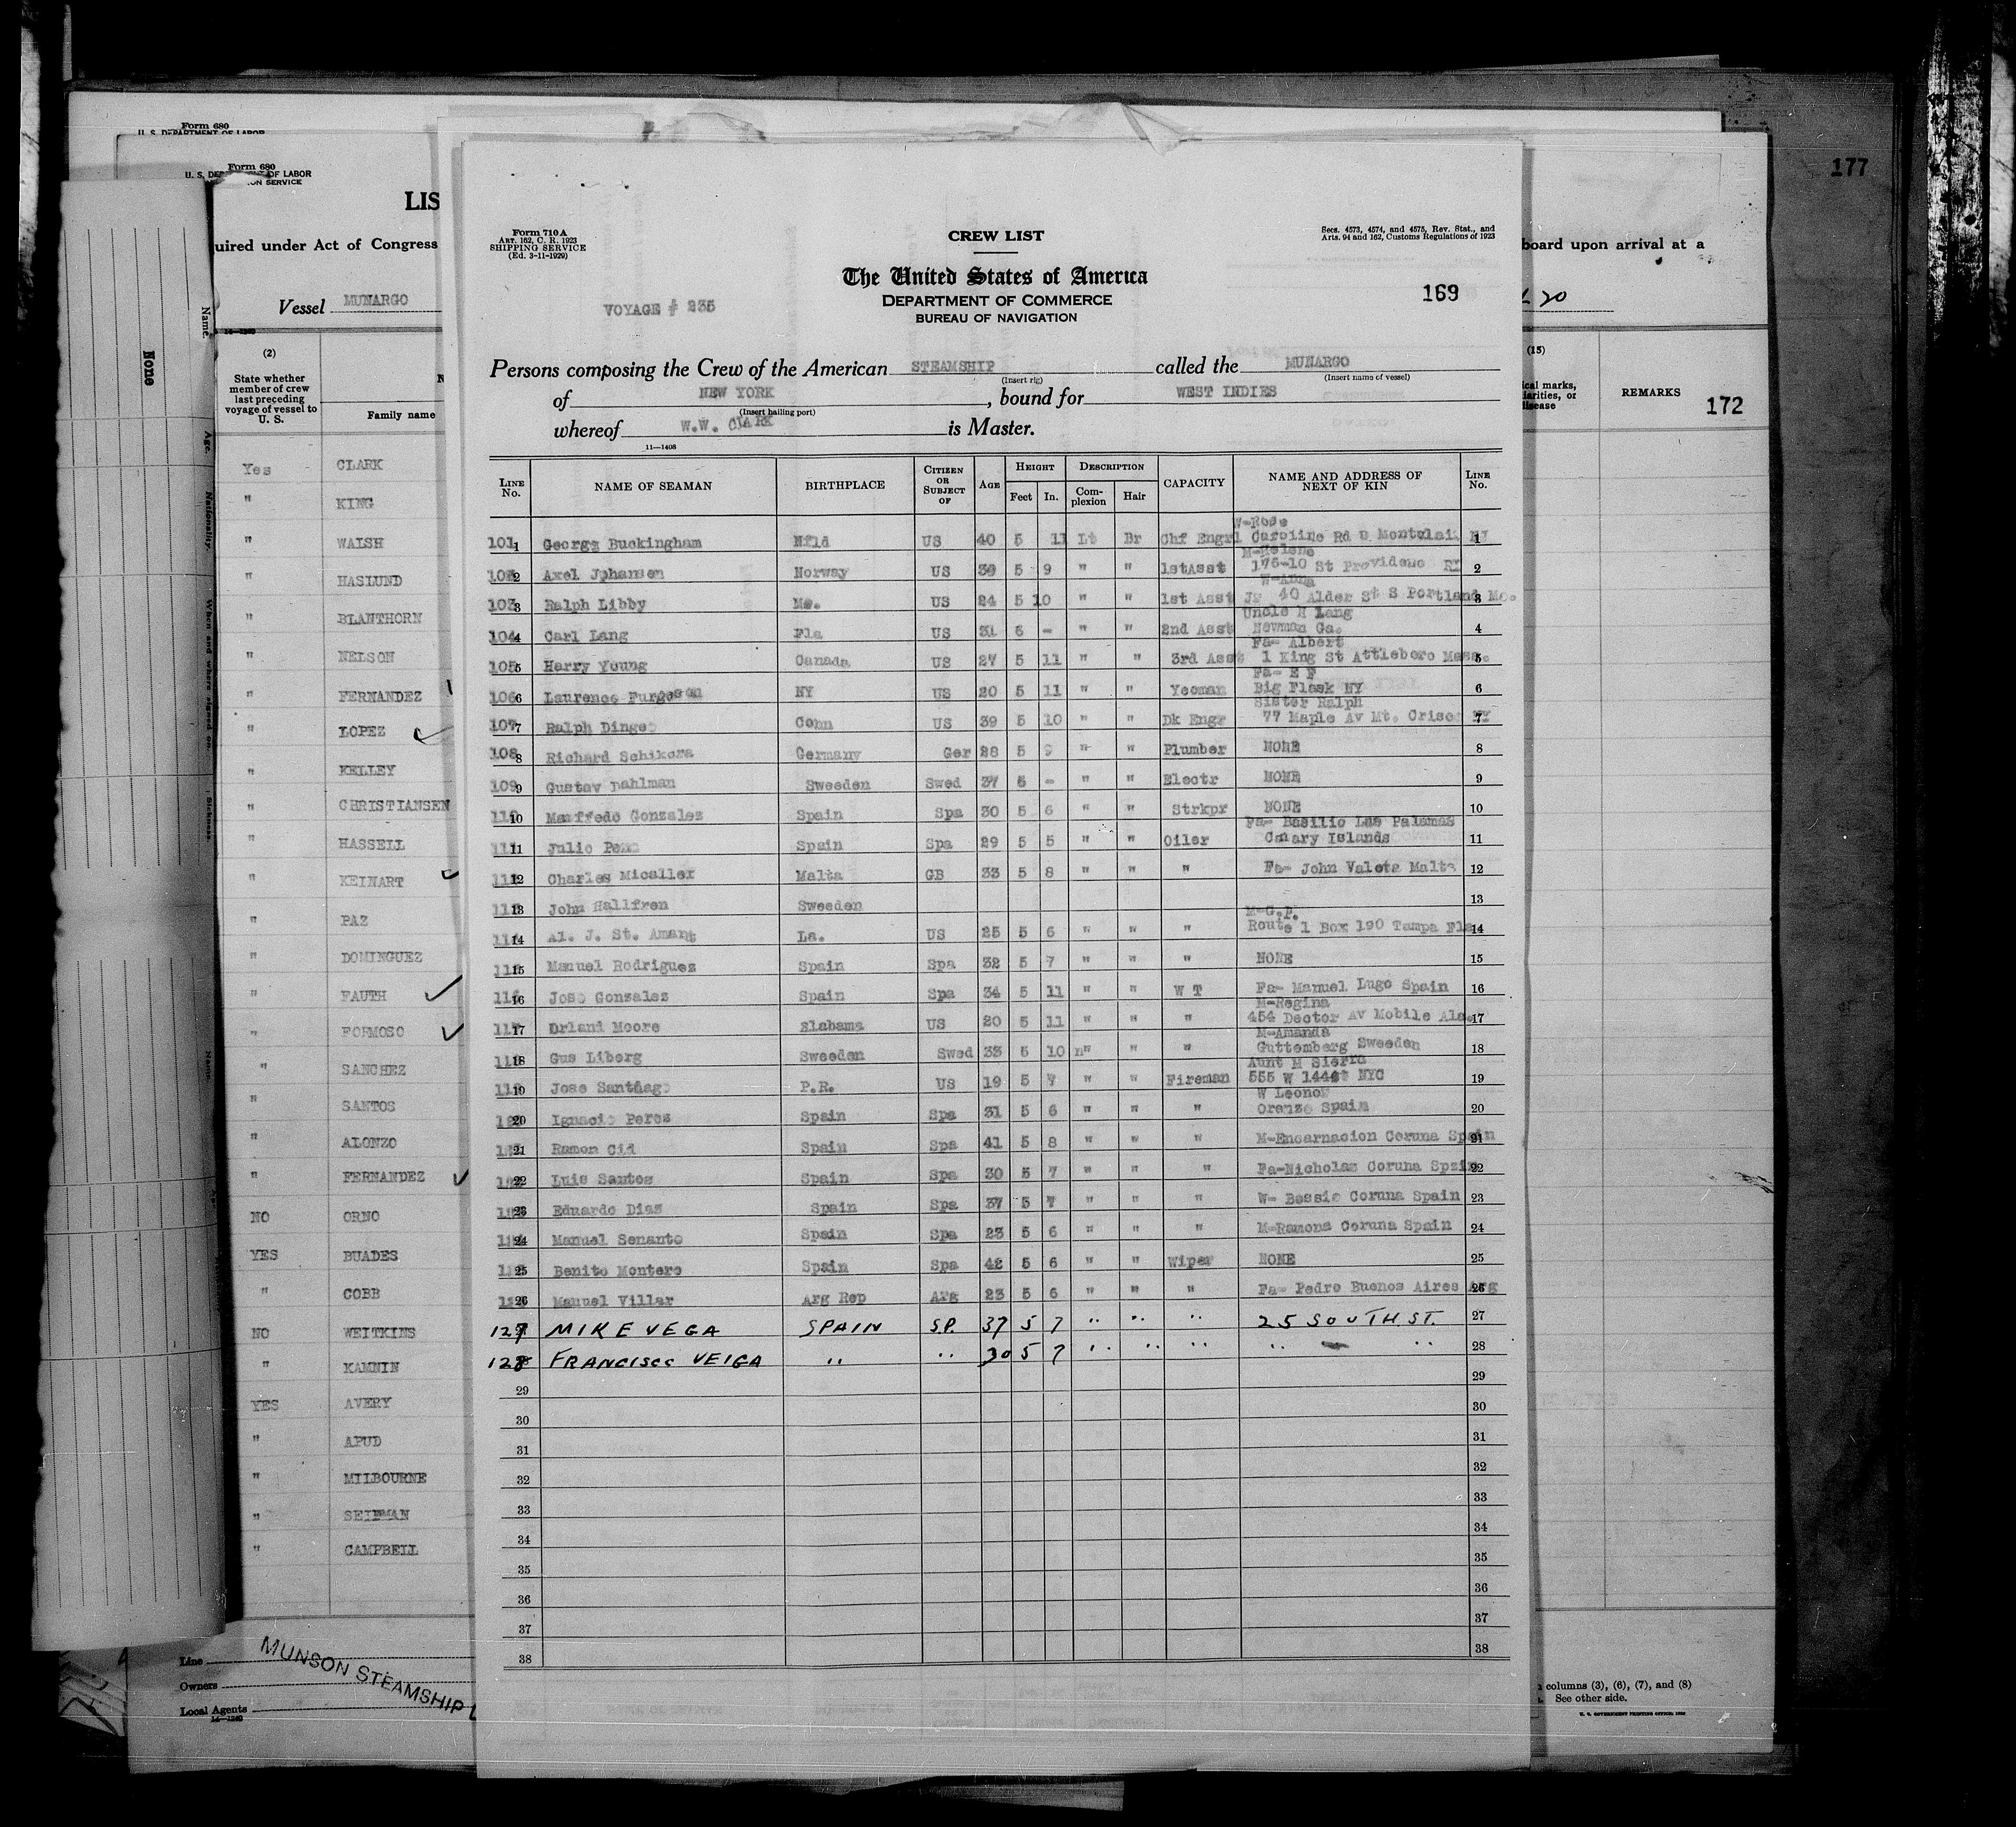 177
Form 680
U. S. DEPARTMENT OF LABOR
Form 680
U. S. DEPARTMENT OF LABOR
ON SERVICE
LIS
uired under Act of Congress
board upon arrival at a
Vessel MUNARGO
None
Name
(2)
State whether member of crew last preceding voyage of vessel to U. S.
Family name
Yes CLARK
" KING
" WALSH
" HASLUND
" BLANTHORN
" NELSON
" FERNANDEZ
" LOPEZ
" KELLEY
" CHRISTIANSEN
" HASSELL
" KEINART
" PAZ
" DOMINGUEZ
" FAUTH
" FORMOSO
" SANCHEZ
" SANTOS
" ALONZO
" FERNANDEZ
NO ORNO
YES BUADES
" COBB
NO WEITKINS
" KAMNIN
YES AVERY
" APUD
" MILBOURNE
" SEIDMAN
" CAMPBELL
Line
Owners
Local Agents
MUNSON STEAMSHIP L
14—1240
Form 710 A
ART. 162, C. R. 1923
SHIPPING SERVICE
(Ed. 3-11-1929)
CREW LIST
Secs. 4573, 4574, and 4575, Rev. Stat., and
Arts. 94 and 162, Customs Regulations of 1923
The United States of America
DEPARTMENT OF COMMERCE
BUREAU OF NAVIGATION
VOYAGE # 235
169
Persons composing the Crew of the American STEAMSHIP called the MUNARGO
(Insert rig) (Insert name of vessel)
of NEW YORK, bound for WEST INDIES
(Insert hailing port)
whereof W.W. CLARK is Master.
11—1408
LINE No. NAME OF SEAMAN BIRTHPLACE CITIZEN OR SUBJECT OF AGE HEIGHT Feet In. DESCRIPTION Complexion Hair CAPACITY NAME AND ADDRESS OF NEXT OF KIN LINE No.
W-Rose
101 1 George Buckingham Nfld US 40 5 11 Lt Br Chf Engr 1 Caroline Rd U Montclai NJ 1
M-Helene
102 2 Axel Johansen Norway US 39 5 9 " " 1stAsst 176-10 St Providenc RI 2
W-Anna
103 3 Ralph Libby Me. US 24 5 10 " " 1st Asst Jr 40 Alder St S Portland Me. 3
Uncle H Lang
104 4 Carl Lang Fla US 31 6 - " " 2nd Asst Newman Ga. 4
Fa- Albert
105 5 Harry Young Canada US 27 5 11 " " 3rd Asst 1 King St Attleboro Mass. 5
Fa- E F
106 6 Laurence Furgeson NY US 20 5 11 " " Yeoman Big Flask NY 6
Sister Ralph
107 7 Ralph Dingee Conn US 39 5 10 " " Dk Engr 77 Maple Av Mt. Crisc NY 7
108 8 Richard Schikora Germany Ger 28 5 9 " " Plumber NONE 8
109 9 Gustav Dahlman Sweeden Swed 37 6 - " " Electr NONE 9
110 10 Manffedo Gonzalez Spain Spa 30 5 6 " " Strkpr NONE 10
Fa- Basilio Las Palamas
111 11 Julio Pena Spain Spa 29 5 5 " " Oiler Canary Islands 11
112 12 Charles Micallef Malta GB 33 5 8 " " " Fa- John Valeta Malta 12
113 13 John Hallfren Sweeden 13
M-G.P.
114 14 Al. J. St. Amant La. US 25 5 6 " " " Route 1 Box 190 Tampa Fla 14
115 15 Manuel Rodriguez Spain Spa 32 5 7 " " " NONE 15
116 16 Jose Gonzalez Spain Spa 34 5 11 " " W T Fa- Manuel Lugo Spain 16
M-Regina
117 17 Orland Moore Elabama US 20 5 11 " " " 454 Dector Av Mobile Ala. 17
M-Amanda
118 18 Gus Liberg Sweeden Swed 33 5 10 " " " Guttemberg Sweeden 18
Aunt M Sierra
119 19 Jose Santiago P.R. US 19 5 7 " " Fireman 555 W 144st NYC 19
W Leonor
120 20 Ignacio Perez Spain Spa 31 5 6 " " " Orenze Spain 20
121 21 Ramon Cid Spain Spa 41 5 8 " " " M-Encarnacion Coruna Spain 21
122 22 Luis Santos Spain Spa 30 5 7 " " " Fa-Nicholas Coruna Spain 22
123 23 Eduardo Dias Spain Spa 37 5 7 " " " W- Bessie Coruna Spain 23
124 24 Manuel Senanto Spain Spa 23 5 6 " " " M-Ramona Coruna Spain 24
125 25 Benito Montero Spain Spa 42 5 6 " " Wiper NONE 25
126 26 Manuel Villar Arg Rep Arg 23 5 6 " " " Fa- Pedro Buenos Aires Arg 26
127 MIKE VEGA SPAIN S.P. 37 5 7 " " " 25 SOUTH ST. 27
128 FRANCISCO VEIGA " " 30 5 7 " " " " " 28
29 29
30 30
31 31
32 32
33 33
34 34
35 35
36 36
37 37
38 38
(15)
ical marks,
iarities, or
disease
REMARKS
172
columns (3), (6), (7), and (8)
See other side.
U. S. GOVERNMENT PRINTING OFFICE